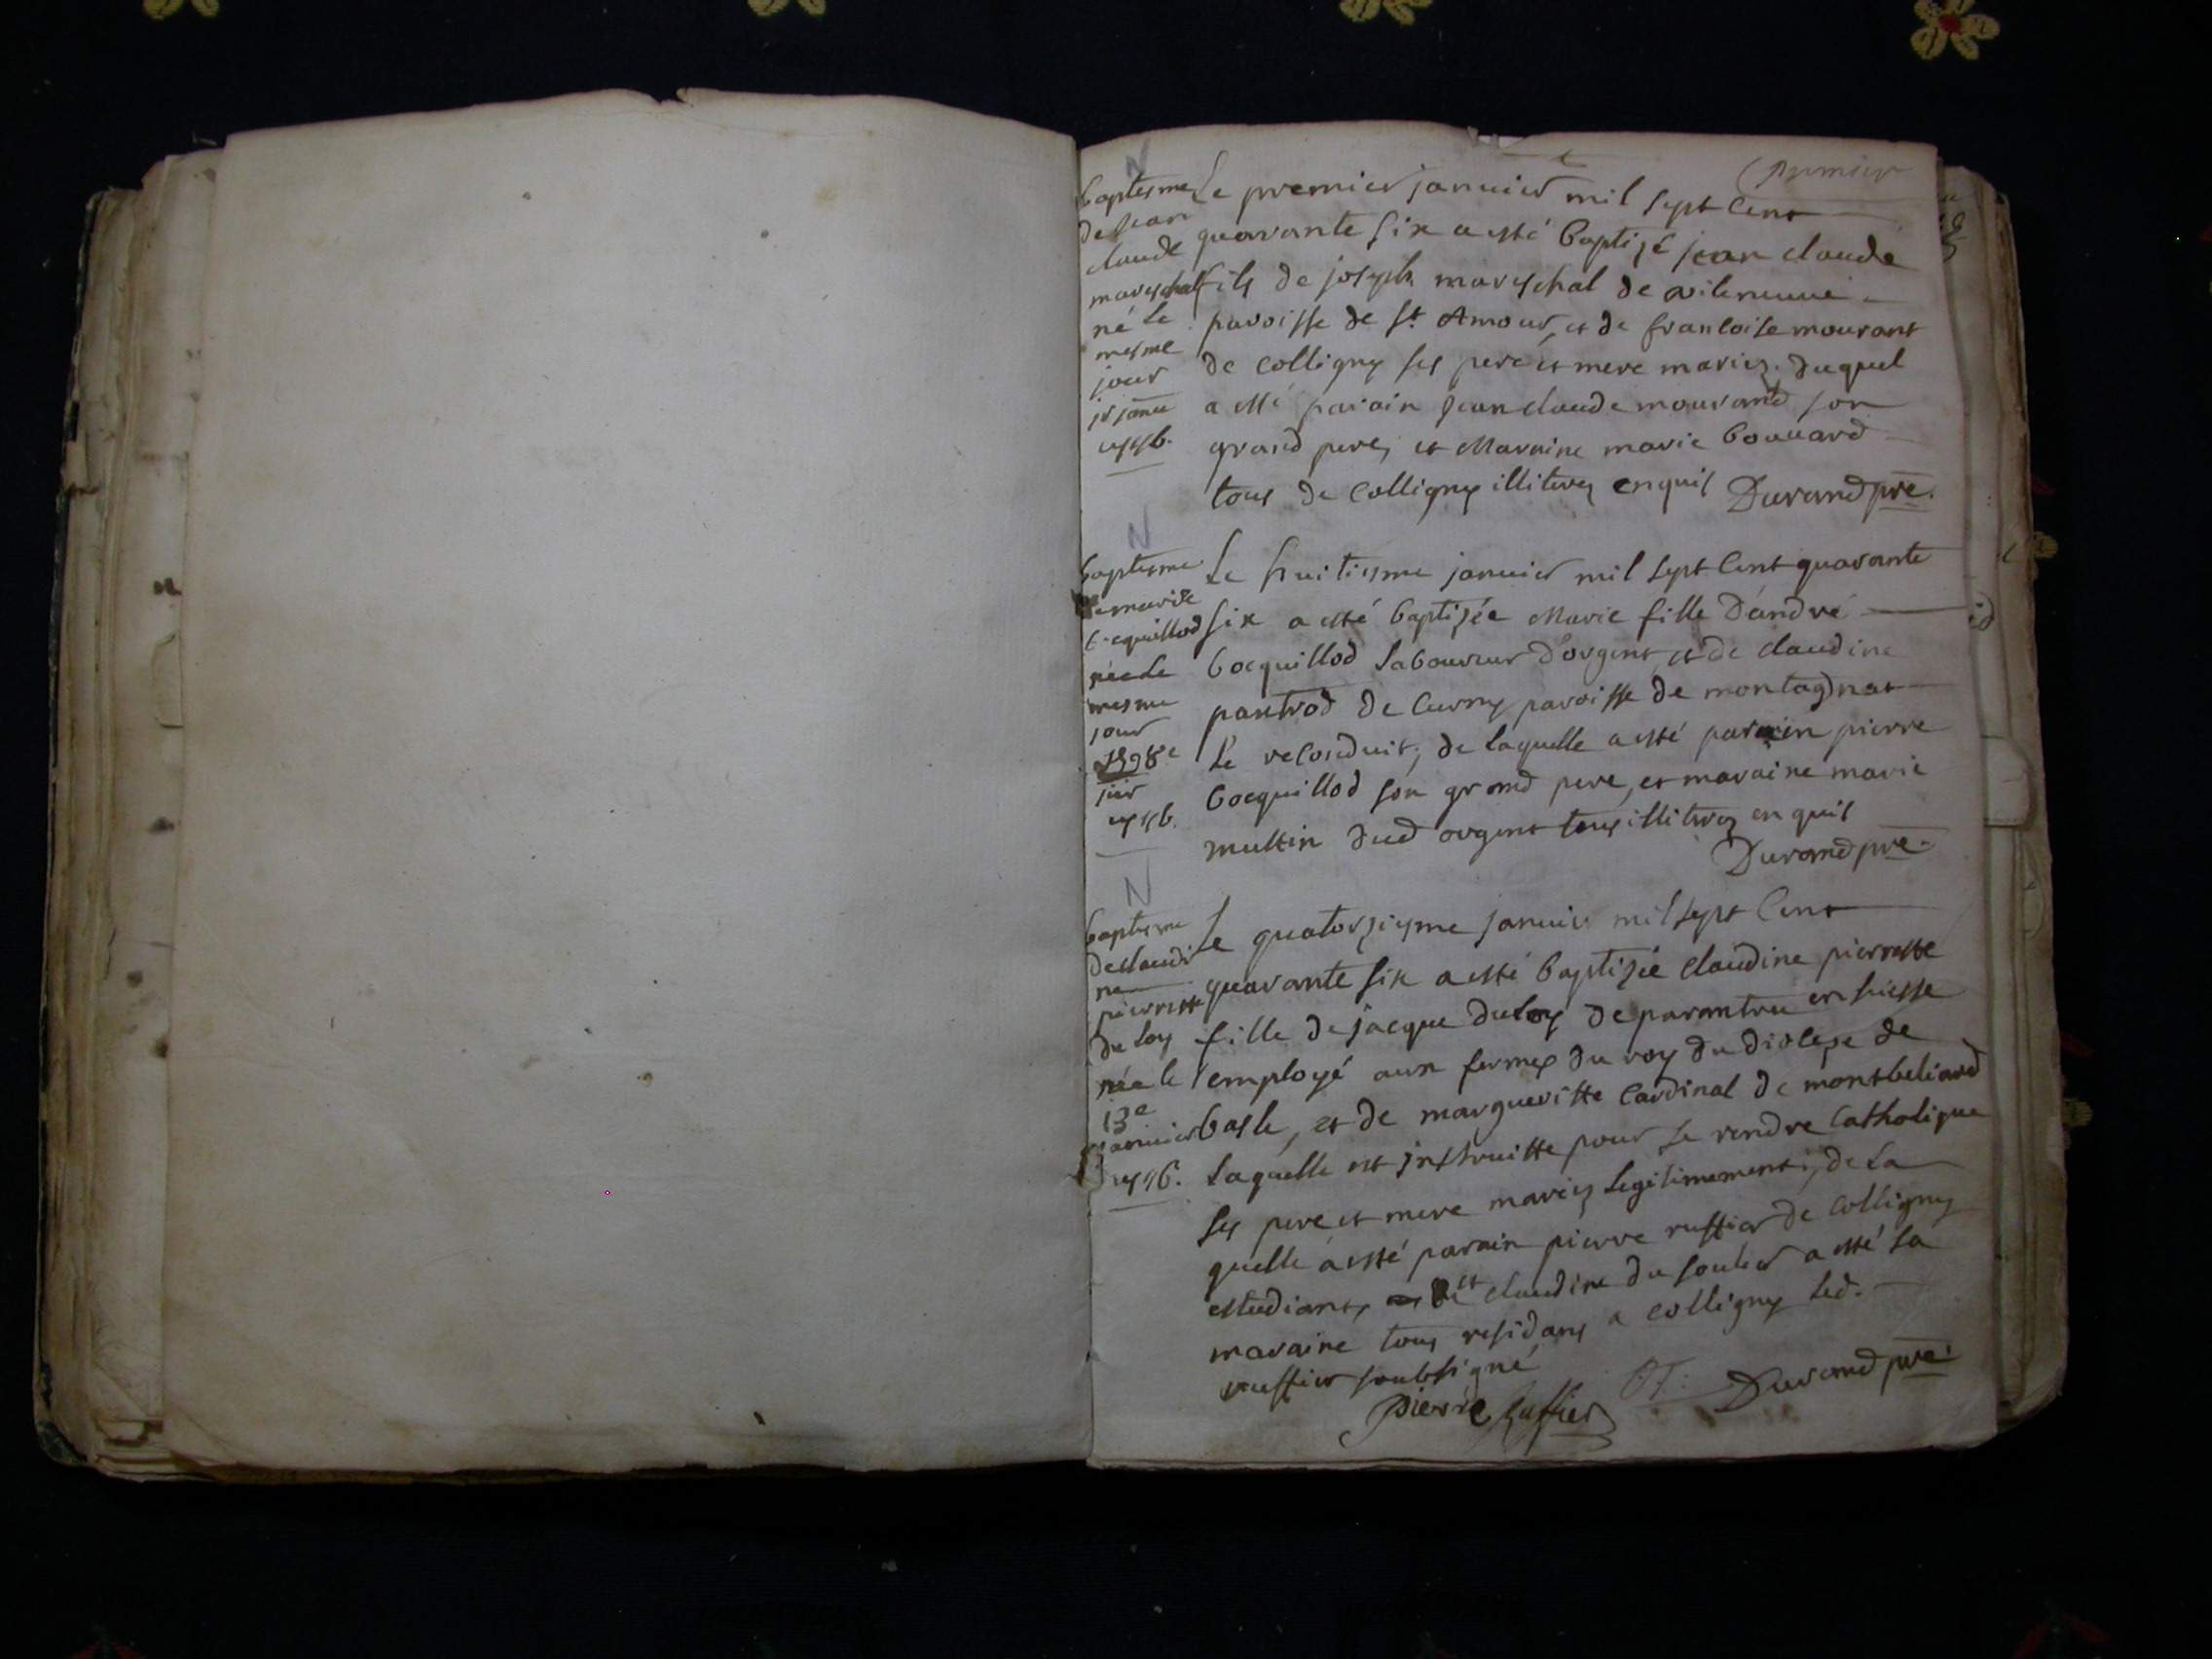 premier
N
baptesme
de jean
claude
mareschal
né le
mesme
jour
jr janu
1746.
Le premier januier mil sept cent
quarante six a esté baptizé jean claude
fils de joseph mareschal de vileneuue
paroisse de St. Amour, et de francoise mourant
de colligny ses pere et mere mariez. duquel
a esté parain jean claude mourand son
grand pere, et Maraine marie bouuard
tous de colligny illiterez enquis Durand pre.
N
baptesme
de marie
bocquillod
née le
mesme
jour
8e
jier
1746.
Le huitiesme januier mil sept cent quarante
six a esté baptizée Marie fille d'andré
bocquillod laboureur d'orgent, et de claudine
pantrod de curny paroisse de montagnat
le reconduit, de laquelle a esté parain pierre
bocquillod son grand pere, et maraine marie
multin dud orgent tous illiterez enquis
Durand pre.
N
baptesme
de claudi
ne
pierrette
du loy
née le
13e
januier
1746.
Le quatorziesme januier mil sept cent
quarante six a esté baptizée claudine pierrette
fille de jacque duloy de parantru en suisse
employé aux fermes du roy du diocese de
basle, et de margueritte cardinal de montbeliard
laquelle est instruitte pour se rendre catholique
ses pere et mere mariez legitimement, de la
quelle a esté parain pierre ruffier de colligny
estudiant, et claudine du soulier a esté la
maraine tous residans a colligny led.
ruffier soubsigné
Pierre Ruffier Durand pre.